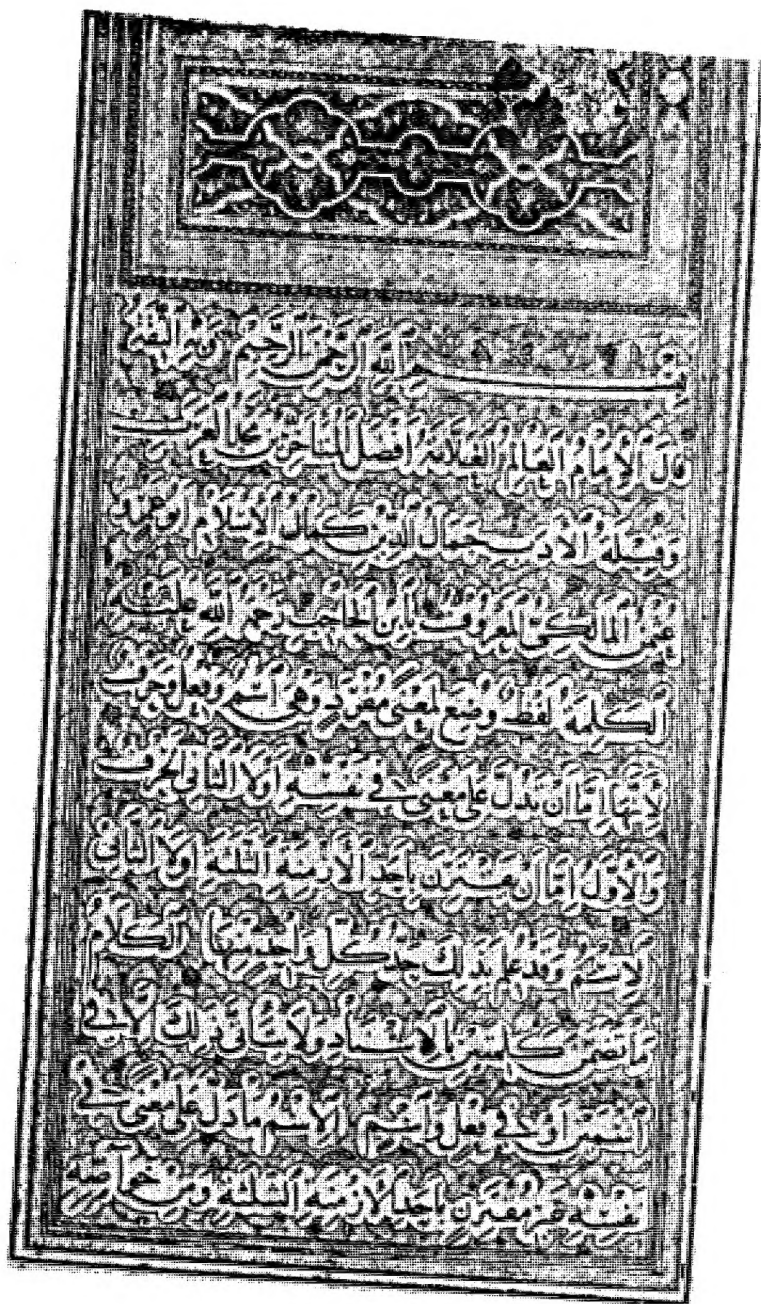 بسم الله الرحمن الرحيم
قال الإمام العالم العلامة أفضل المتأخرين
وقبلة الأدب جمال الدين كمال الإسلام أبو عمرو
عثمن المالكي المعروف بابن الحاجب رحمة الله عليه
الكلمة لفظ وضع لمعنى مفرد وهي اسم وفعل وحرف
لأنها إما أن تدل على معنى في نفسها أو لا الثاني الحرف
والأول إما أن يقترن بأحد الأزمنة الثلثة أو لا الثاني
الاسم وقد علم بذلك حد كل واحد منها الكلام
ما تضمن كلمتين بالإسناد ولا يتأتى ذلك إلا في
اسمين أو في فعل واسم الاسم ما دل على معنى في
نفسه غير مقترن بأحد الأزمنة الثلثة ومن خواصه